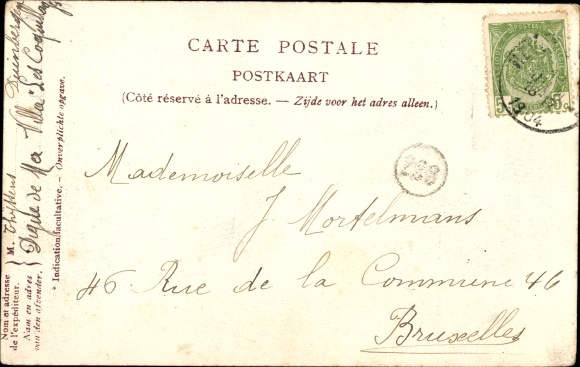 CARTE POSTALE
POSTKAART
(Côté réservé à l'adresse. — Zijde voor het adres alleen.)
Mademoiselle
J. Mortelmans
46 Rue de la Commune 46
Bruxelles
Nom et adresse
de l'expéditeur.
Nam en adres
van den afzender.
M.
Digue de Mer Villa "Les Coquillages
* Indication facultative. — Onverplichte opgave.
1904
5 5